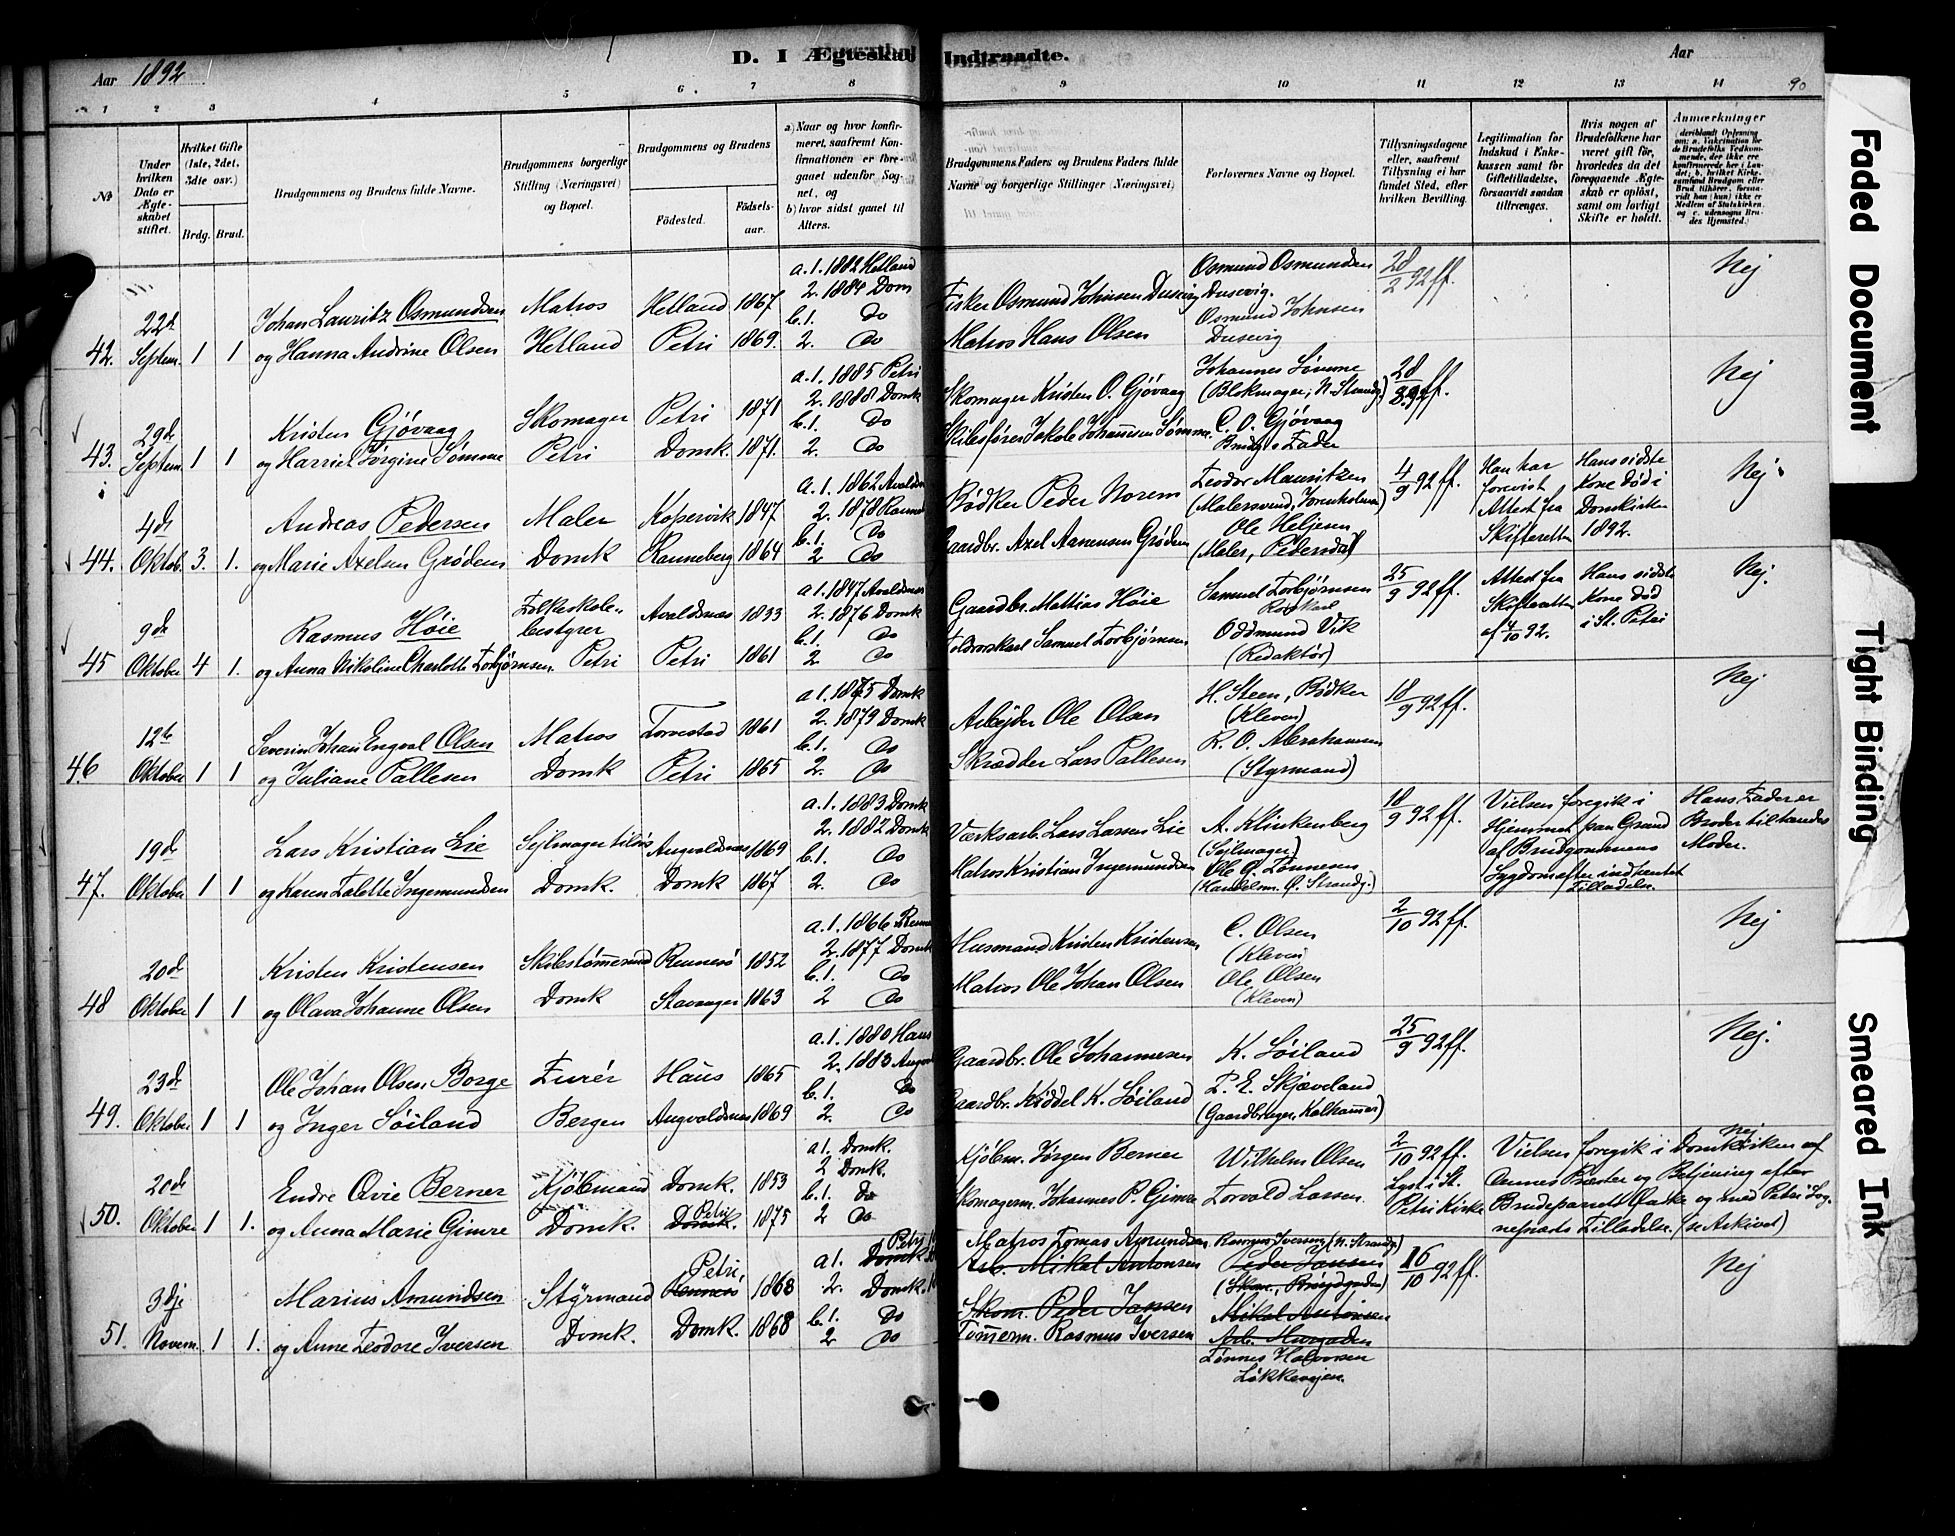 Aar 1892
D. I Ægteskab Indtraadte.
Aar
90
1 2 3 4 5 6. 7 8 9 10 11 12 13 14
No
Under hvilken Dato er Ægteskabet stiftet.
Hvilket Gifte (1ste, 2det, 3dte osv.)
Brdg. Brud.
Brudgommens og Brudens fulde Navne.
Brudgommens borgerlige Stilling (Næringsvei) og Bopæl.
Brudgommens og Brudens
Födested.
Födselsaar.
a) Naar og hvor konfirmeret, saafremt Konfirmationen er foregaaet udenfor Sognet, og
b) hvor sidst gaaet til Alters.
Brudgommens Faders og Brudens Faders fulde Navne og borgerlige Stillinger (Næringsvei)
Forlovernes Navne og Bopæl.
Tillysningsdagene eller, saafremt Tillysning ei har fundet Sted, efter hvilken Bevilling.
Legitimation for Indskud i Enkekassen samt for Giftetilladelse, forsaavidt saadan tiltrænges.
Hvis nogen af Brudefolkene har været gift før, hvorledes da det foregaaende Ægteskab er oplöst, samt om lovligt Skifte er holdt.
Anmærkninger
42. 22d Septem. 1 1
Johan Lauritz Osmundsen
og Hanna Andrine Olsen
Matros
Hetland
Hetland 1867
Petri 1869.
a.1. 1882 Hetland
2. 1884 Dom
b.1. Do
2. Do
Fisker Osmund Johnsen Dusevig
Matros Hans Olsen
Osmund Osmundsen
Dusevig.
Osmund Johnsen
Dusevig
28/2 92 ff.
Nej
43. 29de Septem. 1 1
Kristen Gjøvaag
og Harriet Jørgine Sømme
Skomager
Petri
Petri 1871
Domk. 1871.
a.1. 1885 Petri
2. 1888 Domk
b.1. Do
2. Do
Skomager Kristen O. Gjøvaag
Skibsfører Jakob Johannesen Sømme.
Johannes Sømme
(Blokmager, N. Strandg.)
C. O. Gjøvaag
Brudg.s Fader
28/8 92 ff.
Nej
44. 4de Oktob. 3. 1.
Andreas Pedersen
og Marie Axelsen Grødem
Maler
Domk
Kopervik 1847
Ranneberg 1864
a.1. 1862 Avaldsn
2. 1878
b.1. Do
2 Do
Bødker Peder Norem
Gaardbr. Axel Aanensen Grødem
Teodor Mauritzen
Ole Heljesen
(Maler, Pedersdal)
4/9 92 ff.
Han har forevist Attest fra Skifteretten
Hans sidste Kone død i Domkirken 1892.
Nej.
45 9de Oktober 4 1.
Rasmus Høie
og Anna Nikoline Charlotte Torbjørnsen.
Folkeskolebestyrer
Petri
Avaldsnæs 1833
Petri 1861
a.1. 1847 Avaldsnæs
2. 1876 Domk
b.1. Do
2 Do
Gaardbr. Mattias Høie
Toldrorskarl Samuel Torbjørnsen
Samuel Torbjørnsen
Rorskarl
Oddmund Vik
(Redaktør)
25/9 92 ff.
Attest fra Skifteretten af 4/10 92.
Hans sidste Kone død i St. Petri
Nej.
46 12te Oktober 1 1
Severin Johan Engval Olsen
og Juliane Pallesen
Matros
Domk
Torvestad 1861
Petri 1865
a.1. 1875 Domk
2. 1879 Domk
b.1. Do
2. Do
Arbejder Ole Olsen
Skrædder Lars Pallesen
H. Steen, Bødker
(Kleven)
R. O. Abrahamsen
(Styrmand)
18/9 92 ff.
Nej
47. 19de Oktober 1 1
Lars Kristian Lie
og Karen Talette Ingemundsen
Sejlmager tilsøs
Domk.
Augvaldsnæs 1869
Domk 1867
a.1. 1883 Domk
2. 1882 Domk
b.1. Do
2. Do
Værksarb. Lars Larsen Lie
Matros Kristian Ingemundsen
A. Klinkenberg
(Sejlmager.)
Ole G. Tønnesen
(Handelsm. Ø. Strandg.)
18/9 92 ff.
Vielsen foregik i Hjemmet paa Grund af Brudgommens Sygdom efter indhentet Tilladelse.
Hans Fader er Broder til hendes Moder.
48 20de Oktober 1 1
Kristen Kristensen
og Olava Johanne Olsen
Skibstømmermand
Domk
Rennesø 1852
Stavanger 1863
a.1. 1866
2. 1877 Domk
b.1. Do
2 Do
Husmand Kristen Kristensen
Matros Ole Johan Olsen
C. Olsen
(Kleven)
Ole Olsen
(Kleven)
2/10 92 ff.
Nej
49. 23de Oktober 1 1
Ole Johan Olsen Borge
og Inger Søiland
Furér
Bergen
Haus 1865
Augvaldsnæs 1869
a.1. 1880 Haus
2. 1883
b.1. Do
2. Do
Gaardbr. Ole Johannesen
Gaardbr. Kiddel K. Søiland
K. Søiland
T. E. Skjæveland
25/9 92 ff.
Nej.
50. 20de Oktober 1 1.
Endre Qvie Berner
og Anna Marie Gimre
Kjøbmand
Domk.
Domk. 1853
Petri
Domk. 1875
a.1. Domk.
2 Domk.
b.1. Do
2 Do
Kjøbm. Jørgen Berner
Skomagerm. Johannes P. Gimre
Wilhelm Olsen
Torvald Larsen
2/10 92 ff.
Lyst i St. Petri Kirke
Nej
Vielsen foregik i Domkirken af
Præster og Betjening efter
Brudeparrets Ønske og med Petri Sognefnads Tilladelse. (se Arkivet)
51. 3dje Novem. 1 1.
Marius Amundsen
og Anne Teodore Iversen
Styrmand
Domk.
Petri,
Rennesø 1868
Domk. 1868
Petri
a.1. Domk.
2. Domk.
b.1. Do
2 Do
Matros Tomas Amundsen
Arb. Mikal Antonsen
Skom. Peder Jansen
Tømmerm. Rasmus Iversen
Rasmus Iversen (N. Strandg.)
Peder Jansen
Mikal Antonsen
Tønnes Halvorsen
Løkkevejen.
16/10 92 ff.
Nej
Faded Document
Tight Binding
Smeared Ink